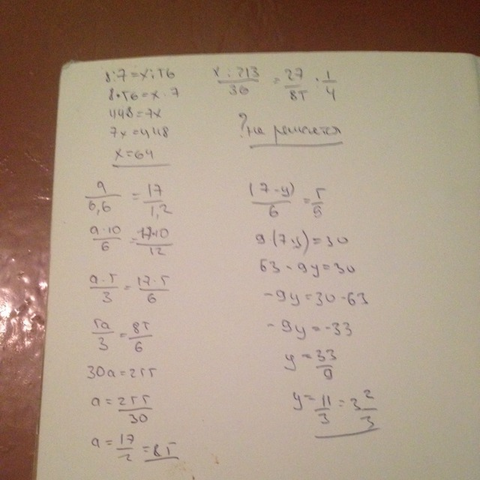 8:7=x:56
8*56=x·7
448=7x
7x=448
x=64
x:213/36 = 27/85 · 1/4
? не решается
a/0,6 = 17/1,2
a·10/6 = 17·10/12
a·5/3 = 17·5/6
5a/3 = 85/6
30a=255
a=255/30
a=17/2=85
(7-y)/6 = 5/9
9·(7y)=30
63-9y=30
-9y=30-63
-9y=-33
y=33/9
y=11/3=3 2/3